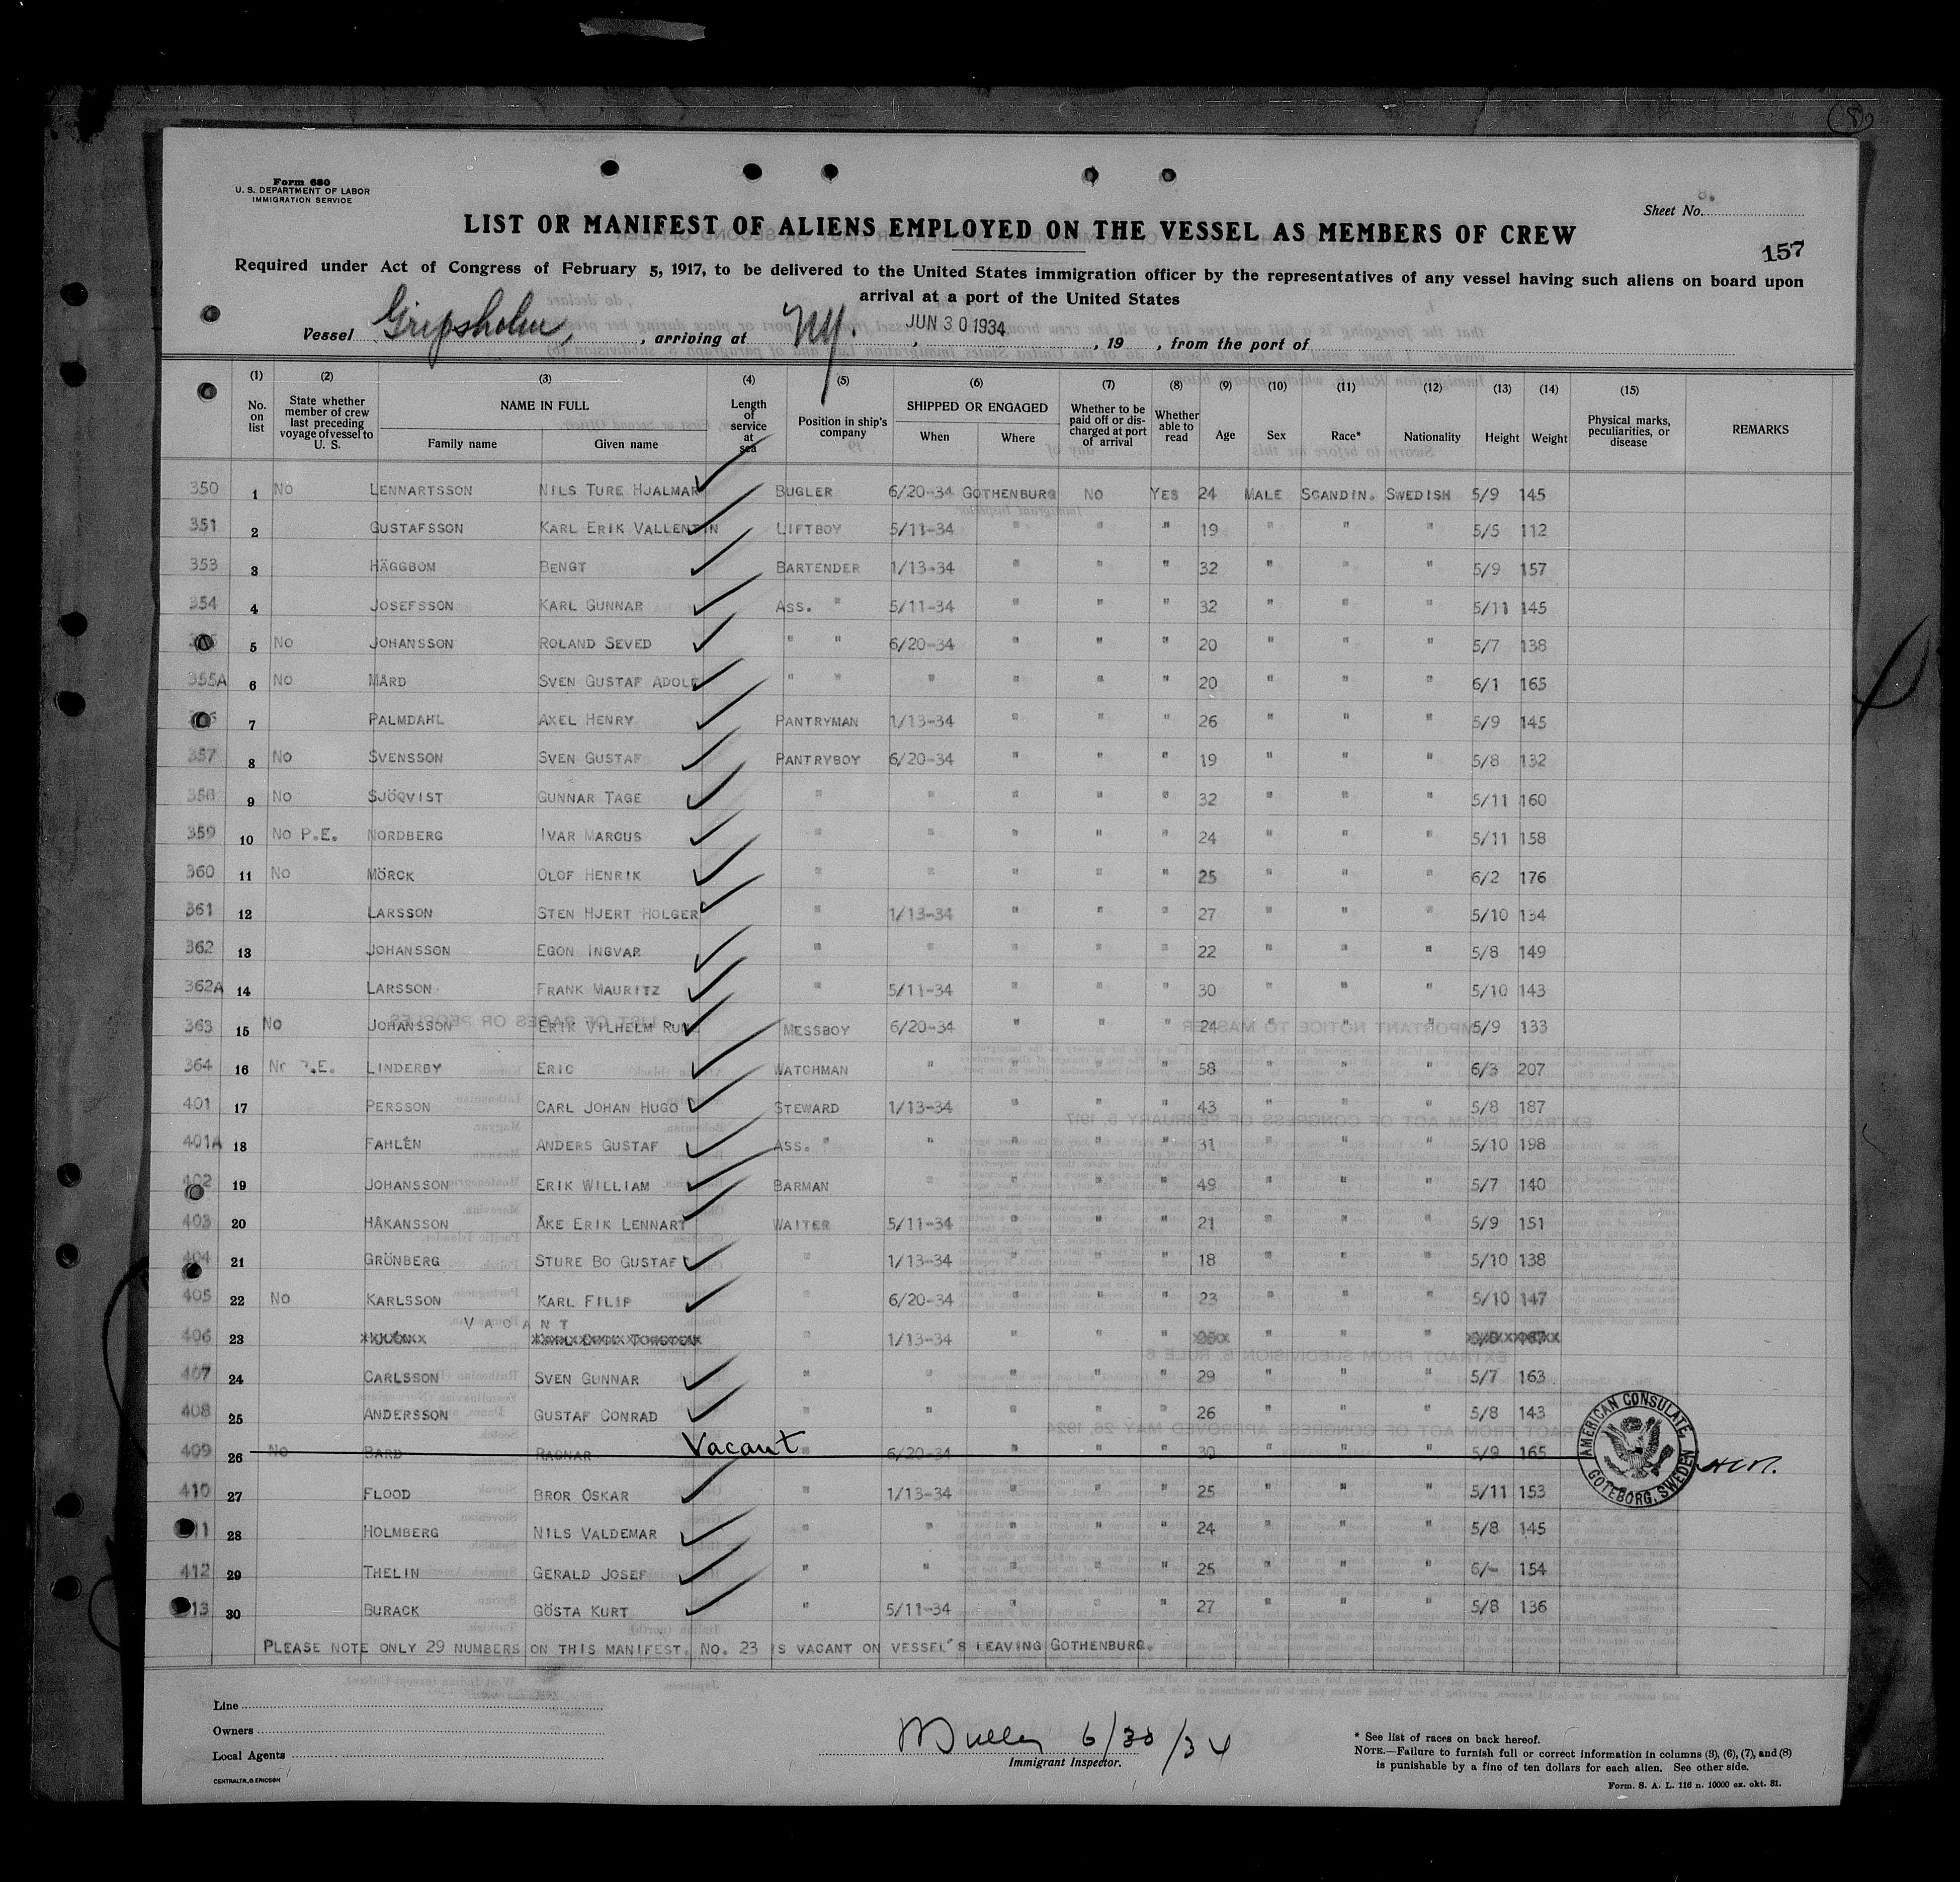 Form 680
U. S. DEPARTMENT OF LABOR
IMMIGRATION SERVICE
8.
Sheet No.
LIST OR MANIFEST OF ALIENS EMPLOYED ON THE VESSEL AS MEMBERS OF CREW
157
Required under Act of Congress of February 5, 1917, to be delivered to the United States immigration officer by the representatives of any vessel having such aliens on board upon
arrival at a port of the United States
Vessel Gripsholm, , arriving at NY. , JUN 30 1934 , 19 , from the port of
(1) (2) (3) (4) (5) (6) (7) (8) (9) (10) (11) (12) (13) (14) (15)
No. on list State whether member of crew last preceding voyage of vessel to U. S. NAME IN FULL Family name Given name Length of service at sea Position in ship's company SHIPPED OR ENGAGED When Where Whether to be paid off or discharged at port of arrival Whether able to read Age Sex Race* Nationality Height Weight Physical marks, peculiarities, or disease REMARKS
350 1 No LENNARTSSON NILS TURE HJALMAR BUGLER 6/20-34 GOTHENBURG NO YES 24 MALE SCANDIN. SWEDISH 5/9 145
351 2 GUSTAFSSON KARL ERIK VALLENTIN LIFTBOY 5/11-34 " " " 19 " " " 5/5 112
353 3 HÄGGBOM BENGT BARTENDER 1/13-34 " " " 32 " " " 5/9 157
354 4 JOSEFSSON KARL GUNNAR ASS. " 5/11-34 " " " 32 " " " 5/11 145
5 No JOHANSSON ROLAND SEVED " " 6/20-34 " " " 20 " " " 5/7 138
355A 6 No MÅRD SVEN GUSTAF ADOLF " " " " " " 20 " " " 6/1 165
7 PALMDAHL AXEL HENRY PANTRYMAN 1/13-34 " " " 26 " " " 5/9 145
357 8 No SVENSSON SVEN GUSTAF PANTRYBOY 6/20-34 " " " 19 " " " 5/8 132
358 9 No SJÖQVIST GUNNAR TAGE " " " " " 32 " " " 5/11 160
359 10 No P.E. NORDBERG IVAR MARCUS " " " " " 24 " " " 5/11 158
360 11 No MÖRCK OLOF HENRIK " " " " " 25 " " " 6/2 176
361 12 LARSSON STEN HJERT HOLGER " 1/13-34 " " " 27 " " " 5/10 134
362 13 JOHANSSON EGON INGVAR " " " " " 22 " " " 5/8 149
362A 14 LARSSON FRANK MAURITZ " 5/11-34 " " " 30 " " " 5/10 143
363 15 No JOHANSSON ERIK VILHELM MESSBOY 6/20-34 " " " 24 " " " 5/9 133
364 16 P.E. LINDERBY ERIC WATCHMAN " " " " 58 " " " 6/3 207
401 17 PERSSON CARL JOHAN HUGO STEWARD 1/13-34 " " " 43 " " " 5/8 187
401A 18 FAHLÉN ANDERS GUSTAF ASS. " " " " " 31 " " " 5/10 198
402 19 JOHANSSON ERIK WILLIAM BARMAN " " " " 49 " " " 5/7 140
403 20 HÅKANSSON ÅKE ERIK LENNART WAITER 5/11-34 " " " 21 " " " 5/9 151
404 21 GRÖNBERG STURE BO GUSTAF " 1/13-34 " " " 18 " " " 5/10 138
405 22 No KARLSSON KARL FILIP " 6/20-34 " " " 23 " " " 5/10 147
VACANT
406 23 " 1/13-34 " " " " " "
407 24 CARLSSON SVEN GUNNAR " " " " " 29 " " " 5/7 163
408 25 ANDERSSON GUSTAF CONRAD " " " " " 26 " " " 5/8 143
409 26 No BARD RAGNAR Vacant " 6/20-34 " " " 30 " " " 5/9 165
410 27 FLOOD BROR OSKAR " 1/13-34 " " " 25 " " " 5/11 153
28 HOLMBERG NILS VALDEMAR " " " " " 24 " " " 5/8 145
412 29 THELIN GERALD JOSEF " " " " " 25 " " " 6/- 154
30 BURACK GÖSTA KURT " 5/11-34 " " " 27 " " " 5/8 136
AMERICAN CONSULATE, GOTEBORG, SWEDEN
PLEASE NOTE ONLY 29 NUMBERS ON THIS MANIFEST. NO. 23 IS VACANT ON VESSEL'S LEAVING GOTHENBURG.
Line
Owners
Local Agents
CENTRALTR., G. ERICSON
6/30/34
Immigrant Inspector.
* See list of races on back hereof.
NOTE.—Failure to furnish full or correct information in columns (3), (6), (7), and (8)
is punishable by a fine of ten dollars for each alien. See other side.
Form. S. A. L. 116 n. 10000 ex. okt. 31.